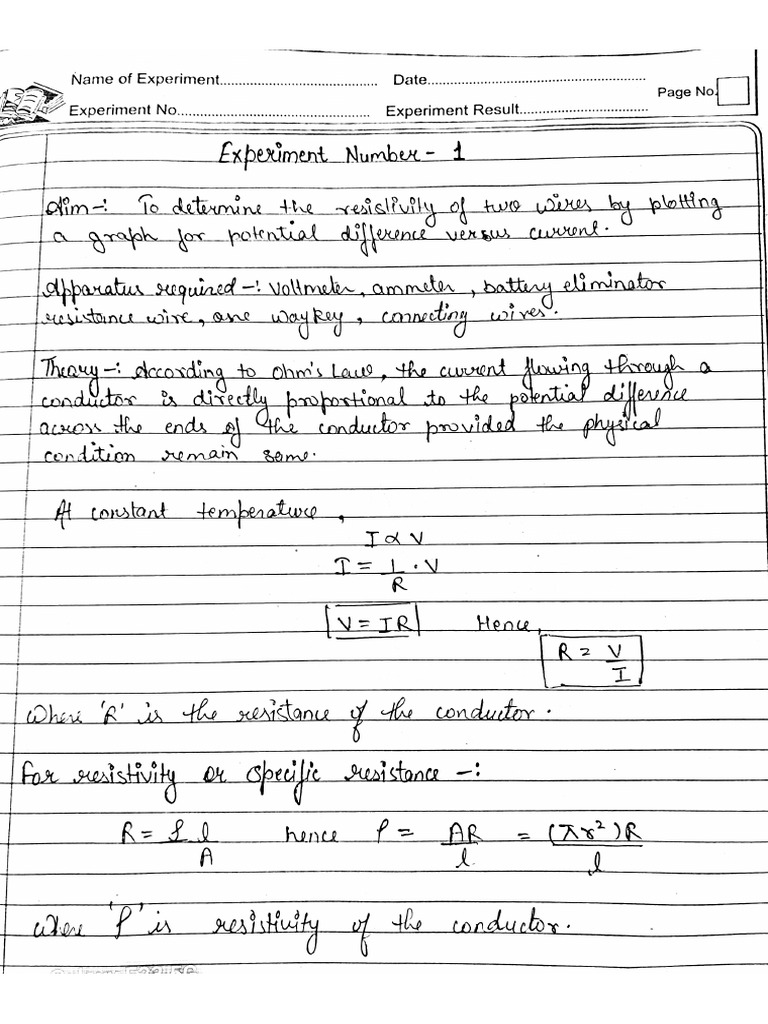 Name of Experiment............................................ Date............................................
Page No.
Experiment No............................................ Experiment Result............................................
Experiment Number - 1
Aim -: To determine the resistivity of two wires by plotting
a graph for potential difference versus current.
Apparatus required -: Voltmeter, ammeter, battery eliminator
resistance wire, one way key, connecting wires.
Theory -: According to Ohm's Law, the current flowing through a
conductor is directly proportional to the potential difference
across the ends of the conductor provided the physical
condition remain same.
At constant temperature,
I ∝ V
I = 1/R · V
V = IR Hence,
R = V/I
Where 'R' is the resistance of the conductor.
For resistivity or specific resistance -:
R = ρ l/A hence ρ = AR/l = (πr²)R/l
where 'ρ' is resistivity of the conductor.